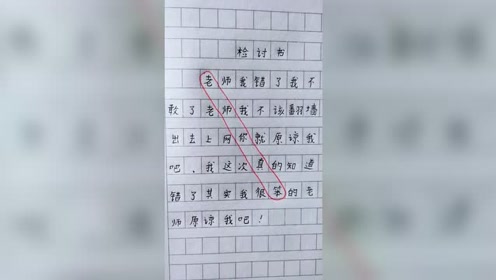 检讨书
老师我错了我不
敢了老师我不该翻墙
出去上网你就原谅我
吧，我这次真的知道
错了其实我很笨的老
师原谅我吧！